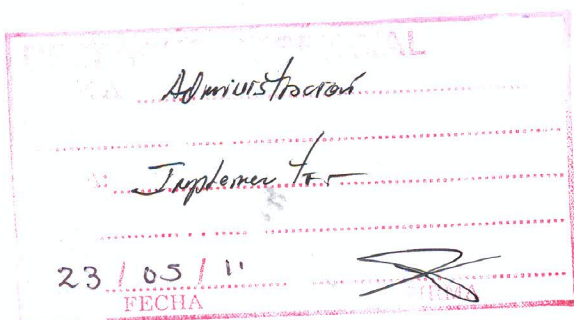 Administración
Implementar
23 / 05 / 11
FECHA
FIRMA